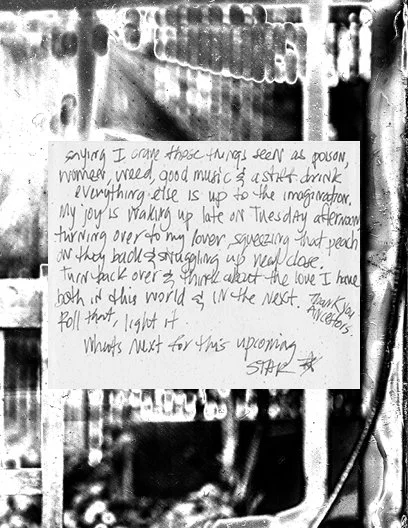 saying I crave those things seen as poison,
women, weed, good music & a stiff drink
everything else is up to the imagination.
My joy is waking up late on Tuesday afternoon
turning over to my lover, squeezing that peach
on they back & snuggling up real close.
Turn back over & think about the love I have
both in this world & in the next. Thank you
Ancestors.
Roll that, light it
whats next for this upcoming
STAR